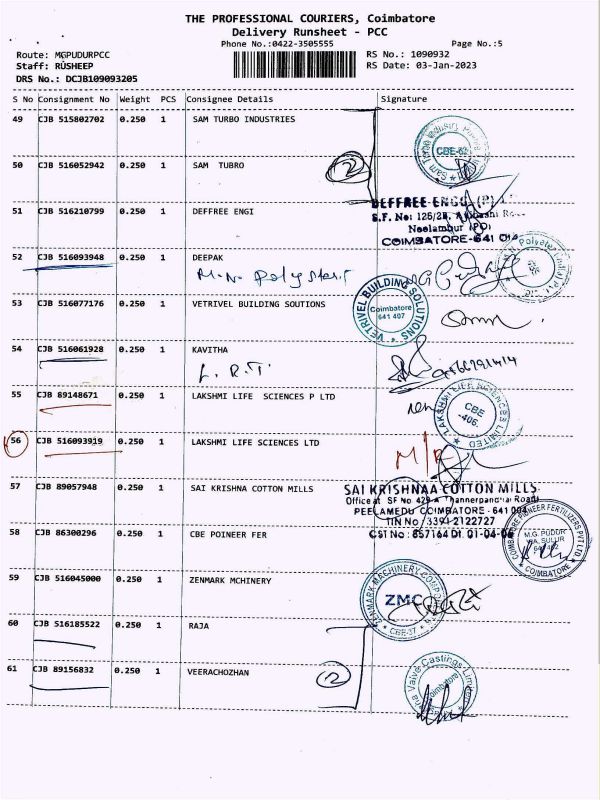 THE PROFESSIONAL COURIERS, Coimbatore
Delivery Runsheet - PCC
Phone No.:0422-3505555 Page No.:5
Route: MGPUDURPCC RS No.: 1090932
Staff: RUSHEEP RS Date: 03-Jan-2023
DRS No.: DCJB109093205
S No Consignment No Weight PCS Consignee Details Signature
49 CJB 515802702 0.250 1 SAM TURBO INDUSTRIES
CBE-62
50 CJB 516052942 0.250 1 SAM TUBRO
2
51 CJB 516210799 0.250 1 DEFFREE ENGI
DEFFREE ENGG (P)
S.F. No: 126/2B,
Neelambur (PO)
COIMBATORE-641 014
52 CJB 516093948 0.250 1 DEEPAK
M.N. Polyster
53 CJB 516077176 0.250 1 VETRIVEL BUILDING SOUTIONS
VETRIVEL BUILDING SOLUTIONS
Coimbatore
641 407
54 CJB 516061928 0.250 1 KAVITHA
L.R.T.
55 CJB 89148671 0.250 1 LAKSHMI LIFE SCIENCES P LTD
LAKSHMI LIFE SCIENCES LIMITED
CBE
-406.
56 CJB 516093919 0.250 1 LAKSHMI LIFE SCIENCES LTD
M/R
57 CJB 89057948 0.250 1 SAI KRISHNA COTTON MILLS
SAI KRISHNAA COTTON MILLS
Office at SF No 429-A Thannerpandhal Road
PEELAMEDU COIMBATORE - 641 004
TIN No / 33912122727
CST No : 857164 Dt. 01-04-06
58 CJB 86300296 0.250 1 CBE POINEER FER
COIMBATORE PIONEER FERTILIZERS PVT LTD.
M.G. PUDUR
SULUR
COIMBATORE
59 CJB 516045000 0.250 1 ZENMARK MCHINERY
ZENMARK MACHINERY
ZMC
CBE-37
60 CJB 516185522 0.250 1 RAJA
61 CJB 89156832 0.250 1 VEERACHOZHAN
2
Castings Limited
Coimbatore